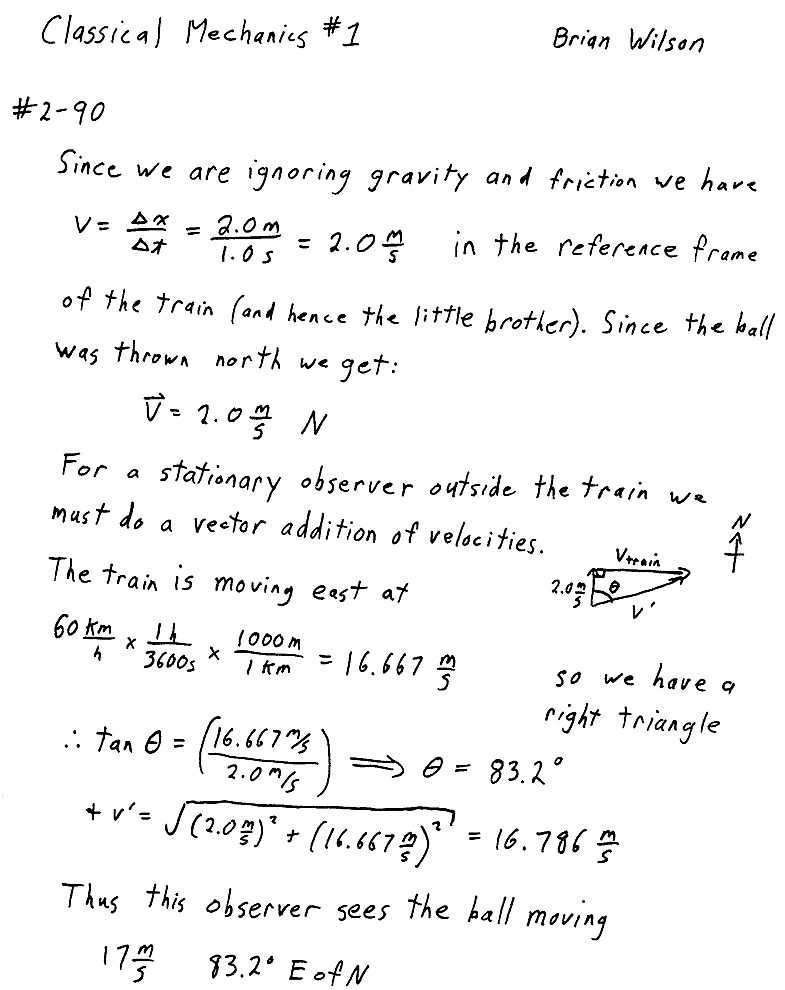 Classical Mechanics #1 Brian Wilson
#2-90
Since we are ignoring gravity and friction we have
V = Δx/Δt = 2.0 m/1.0 s = 2.0 m/s in the reference frame
of the train (and hence the little brother). Since the ball
was thrown north we get:
V⃗ = 2.0 m/s N
For a stationary observer outside the train we
must do a vector addition of velocities.
N
Vtrain
2.0 m/s θ
V'
The train is moving east at
60 km/h × 1 h/3600s × 1000 m/1 km = 16.667 m/s
so we have a
right triangle
∴ tan θ = (16.667 m/s / 2.0 m/s) ⟹ θ = 83.2°
+ v' = √((2.0 m/s)² + (16.667 m/s)²) = 16.786 m/s
Thus this observer sees the ball moving
17 m/s 83.2° E of N